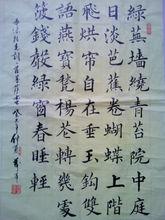 綠蕪墻繞青苔院中庭
日淡芭蕉卷蝴蝶上階
飛烘帘自在垂玉鈎雙
語燕寶甃楊花轉幾處
簸錢聲綠窗春睡輕